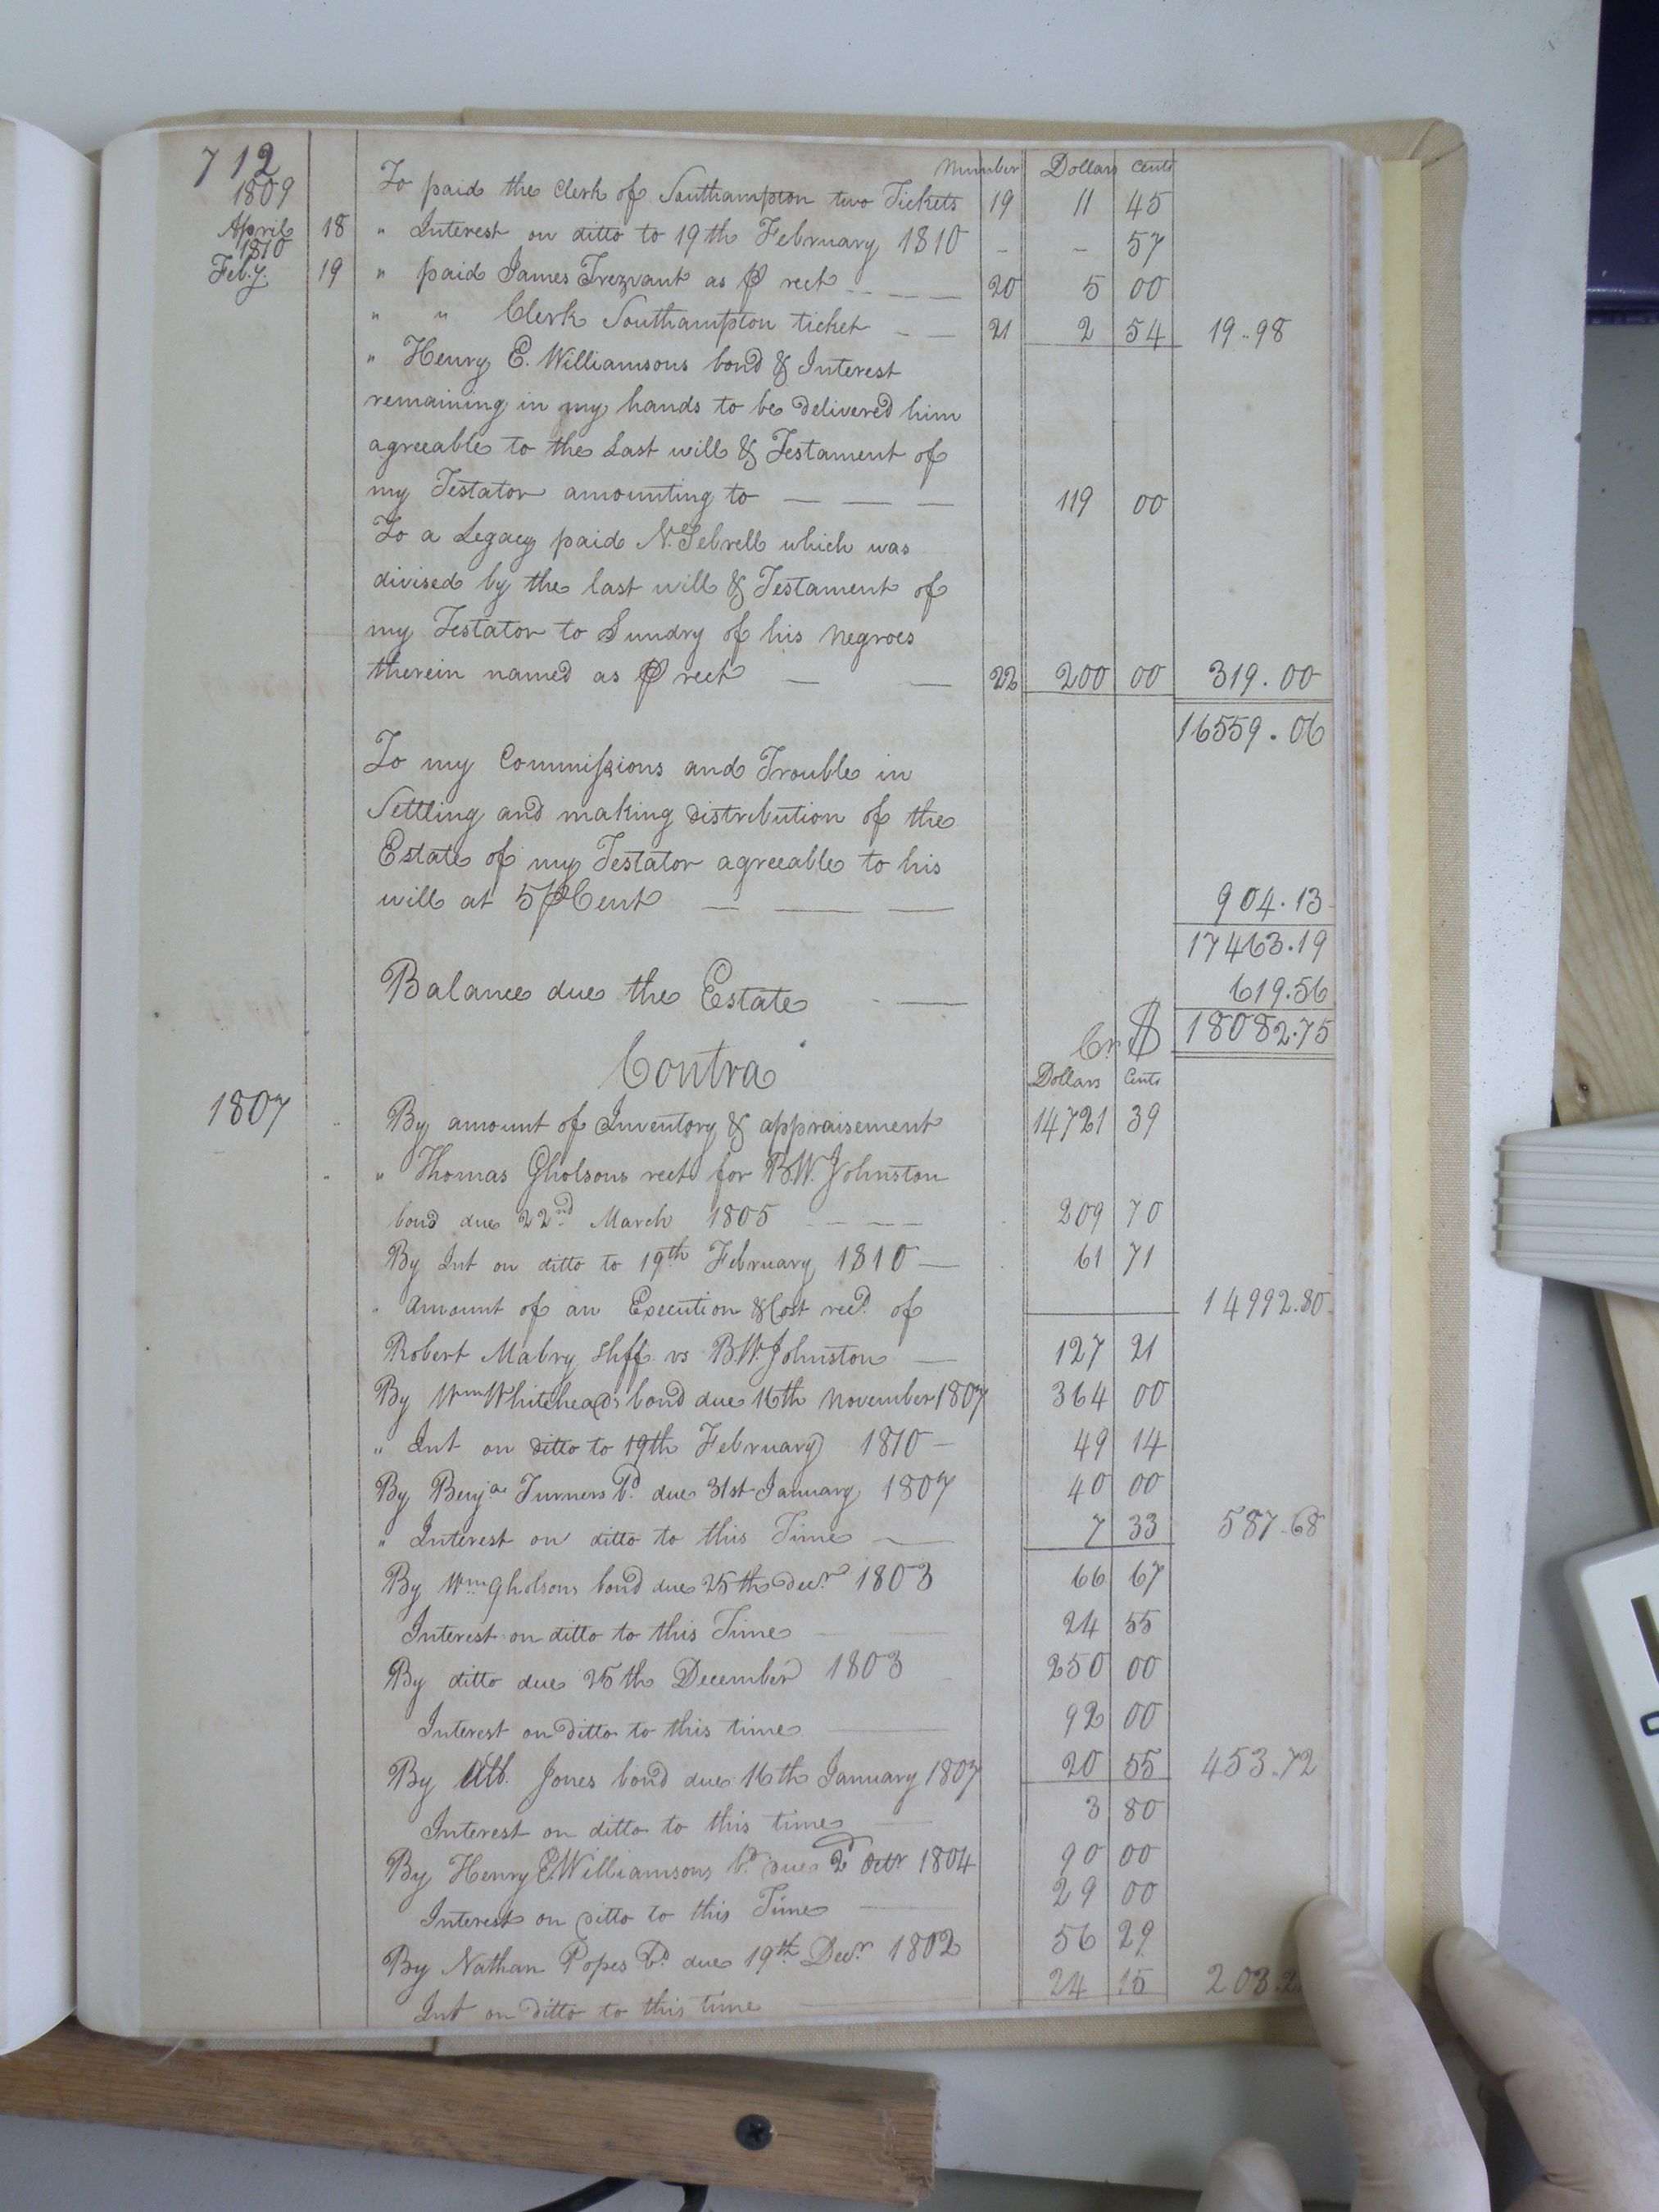 712
Number Dollars Cents
1809 To paid the Clerk of Southampton two Tickets 19 11 45
April 18 " Interest on ditto to 19th February 1810 - - 57
1810
Feby. 19 " paid James Trezvant as ⅌ rect 20 5 00
" " Clerk Southampton ticket 21 2 54 19..98
" Henry E. Williamsons bond & Interest
remaining in my hands to be delivered him
agreeable to the Last will & Testament of
my Testator amounting to 119 00
To a Legacy paid N. Sebrell which was
divised by the last will & Testament of
my Testator to Sundry of his Negroes
therein named as ⅌ rect 22 200 00 319.00
16559.06
To my Commissions and Trouble in
Settling and making distribution of the
Estate of my Testator agreeable to his
will at 5 ⅌ Cent 904.13
17463.19
Balance due the Estate 619.56
Cr $ 18082.75
Contra Dollars Cents
1807 By amount of Inventory & appraisement 14721 39
" Thomas Gholsons rect for B.W. Johnston
bond due 22nd March 1805 209 70
By Int on ditto to 19th February 1810 61 71
" Amount of an Execution & Cost recd. of 14992.80
Robert Mabry Shff vs B.W. Johnston 127 21
By Wm Whiteheads bond due 16th November 1807 364 00
" Int on ditto to 19th February 1810 49 14
By Benja Turners bd. due 31st January 1807 40 00
" Interest on ditto to this Time 7 33 587.68
By Wm Gholsons bond due 25th Decr. 1803 66 67
Interest on ditto to this Time 24 55
By ditto due 25th December 1803 250 00
Interest on ditto to this time 92 00
By Alb. Jones bond due 16th January 1807 20 55 453.72
Interest on ditto to this time 3 80
By Henry E. Williamsons bd. due 2d Octr 1804 90 00
Interest on ditto to this Time 29 00
By Nathan Popes bd. due 19th Decr. 1802 56 29
Int on ditto to this time 24 15 203.2